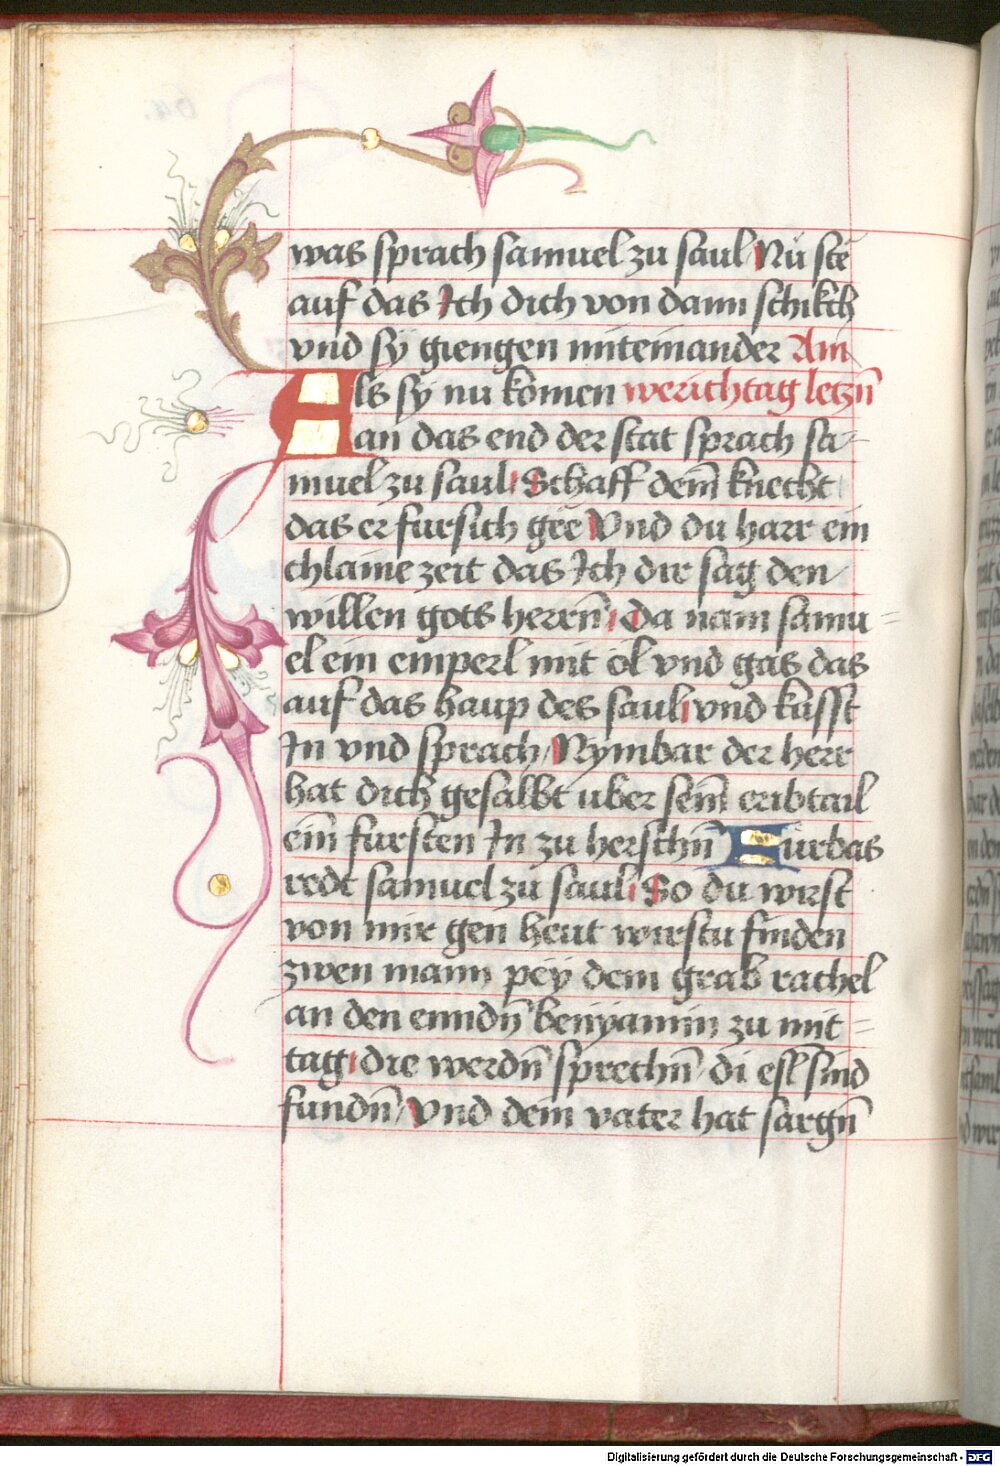 was sprach samuel zu saul Nu ste
auf das Ich dich von dann schikch
vnd sÿ giengen miteinander Am
Als sy nu komen werichtag letzñ
an das end der stat sprach sa-
muel zu saul Schaff dem̄ knecht
das er fursich gee Vnd du harr ein
chlaine zeit das Ich dir sag den
willen gots herrn̄ Da nam samu=
el ein emperl mit öl vnd gas das
auf das haup des saul vnd kusst
In vnd sprach Nymbar der herr
hat dich gesalbt uber sein̄ eribtail
ein̄ fursten In zu herschn̄ Furbas
redt samuel zu saul So du wirst
von mir gen heut wirstu finden
zwen mann peÿ dem grab rachel
an den enndn̄ benÿamin zu mit=
tag die werdn̄ sprechn̄ di esl sind
fundn̄ Vnd dein vater hat sargn̄
Digitalisierung gefördert durch die Deutsche Forschungsgemeinschaft - DFG